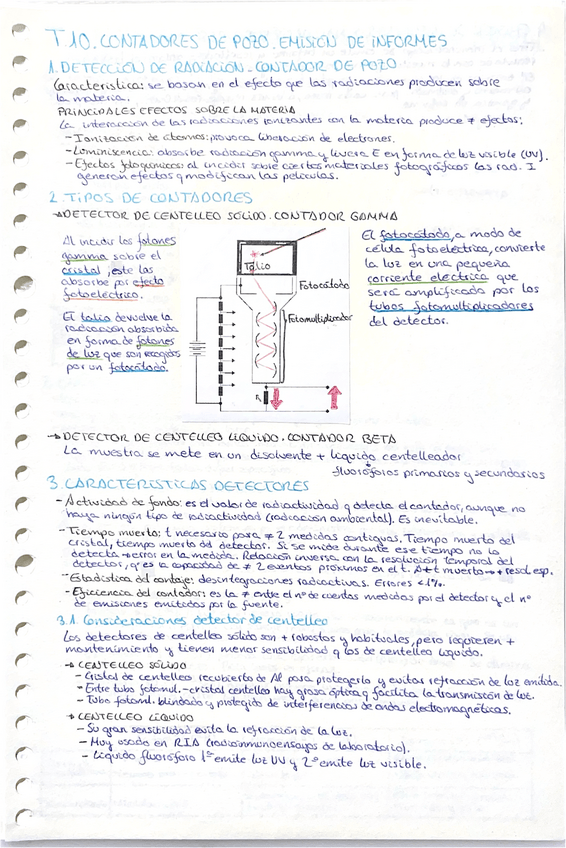 T.10. CONTADORES DE POZO. EMISIÓN DE INFORMES
1. DETECCIÓN DE RADIACIÓN - CONTADOR DE POZO
Característica: se basan en el efecto que las radiaciones producen sobre
la materia.
PRINCIPALES EFECTOS SOBRE LA MATERIA
La interacción de las radiaciones ionizantes con la materia produce ≠ efectos:
- Ionización de átomos: provoca liberación de electrones.
- Luminiscencia: absorbe radiación gamma y libera E en forma de luz visible (UV).
- Efectos fotográficos: al incidir sobre ciertos materiales fotográficos las rad. I
generan efectos q modifican las películas.
2. TIPOS DE CONTADORES
→ DETECTOR DE CENTELLEO SÓLIDO. CONTADOR GAMMA
Al incidir los fotones
gamma sobre el
cristal, este las
absorbe por efecto
fotoeléctrico.
El talio devuelve la
radiación absorbida
en forma de fotones
de luz que son recogidos
por un fotocátodo.
Talio
Fotocátodo
Fotomultiplicador
R
El fotocátodo, a modo de
célula fotoeléctrica, convierte
la luz en una pequeña
corriente eléctrica que
será amplificada por los
tubos fotomultiplicadores
del detector.
→ DETECTOR DE CENTELLEO LÍQUIDO. CONTADOR BETA
La muestra se mete en un disolvente + líquido centelleador
fluoróforos primarios y secundarios
3. CARACTERÍSTICAS DETECTORES
- Actividad de fondo: es el valor de radiactividad q detecta el contador, aunque no
haya ningún tipo de radiactividad (radiación ambiental). Es inevitable.
- Tiempo muerto: t necesario para ≠ 2 medidas contiguas. Tiempo muerto del
cristal, tiempo muerto del detector. Si se mide durante ese tiempo no lo
detecta → error en la medida. Relación inversa con la resolución temporal del
detector, q es la capacidad de ≠ 2 eventos próximos en el t. A + t muerto → + resol. esp.
- Estadística del contaje: desintegraciones radiactivas. Errores <1%.
- Eficiencia del contador: es la ≠ entre el nº de cuentas medidas por el detector y el nº
de emisiones emitidas por la fuente.
3.1. Consideraciones detector de centelleo
Los detectores de centelleo sólido son + robustos y habituales, pero requieren +
mantenimiento y tienen menor sensibilidad q los de centelleo líquido.
→ CENTELLEO SÓLIDO
- Cristal de centelleo recubierto de Al para protegerlo y evitar refracción de luz emitida.
- Entre tubo fotomul. - cristal centelleo hay grasa óptica q facilita la transmisión de luz.
- Tubo fotomul. blindado y protegido de interferencias de ondas electromagnéticas.
→ CENTELLEO LÍQUIDO
- Su gran sensibilidad evita la refracción de la luz.
- Muy usado en RIA (radioinmunoensayos de laboratorio).
- Líquido fluoróforo 1º emite luz UV y 2º emite luz visible.